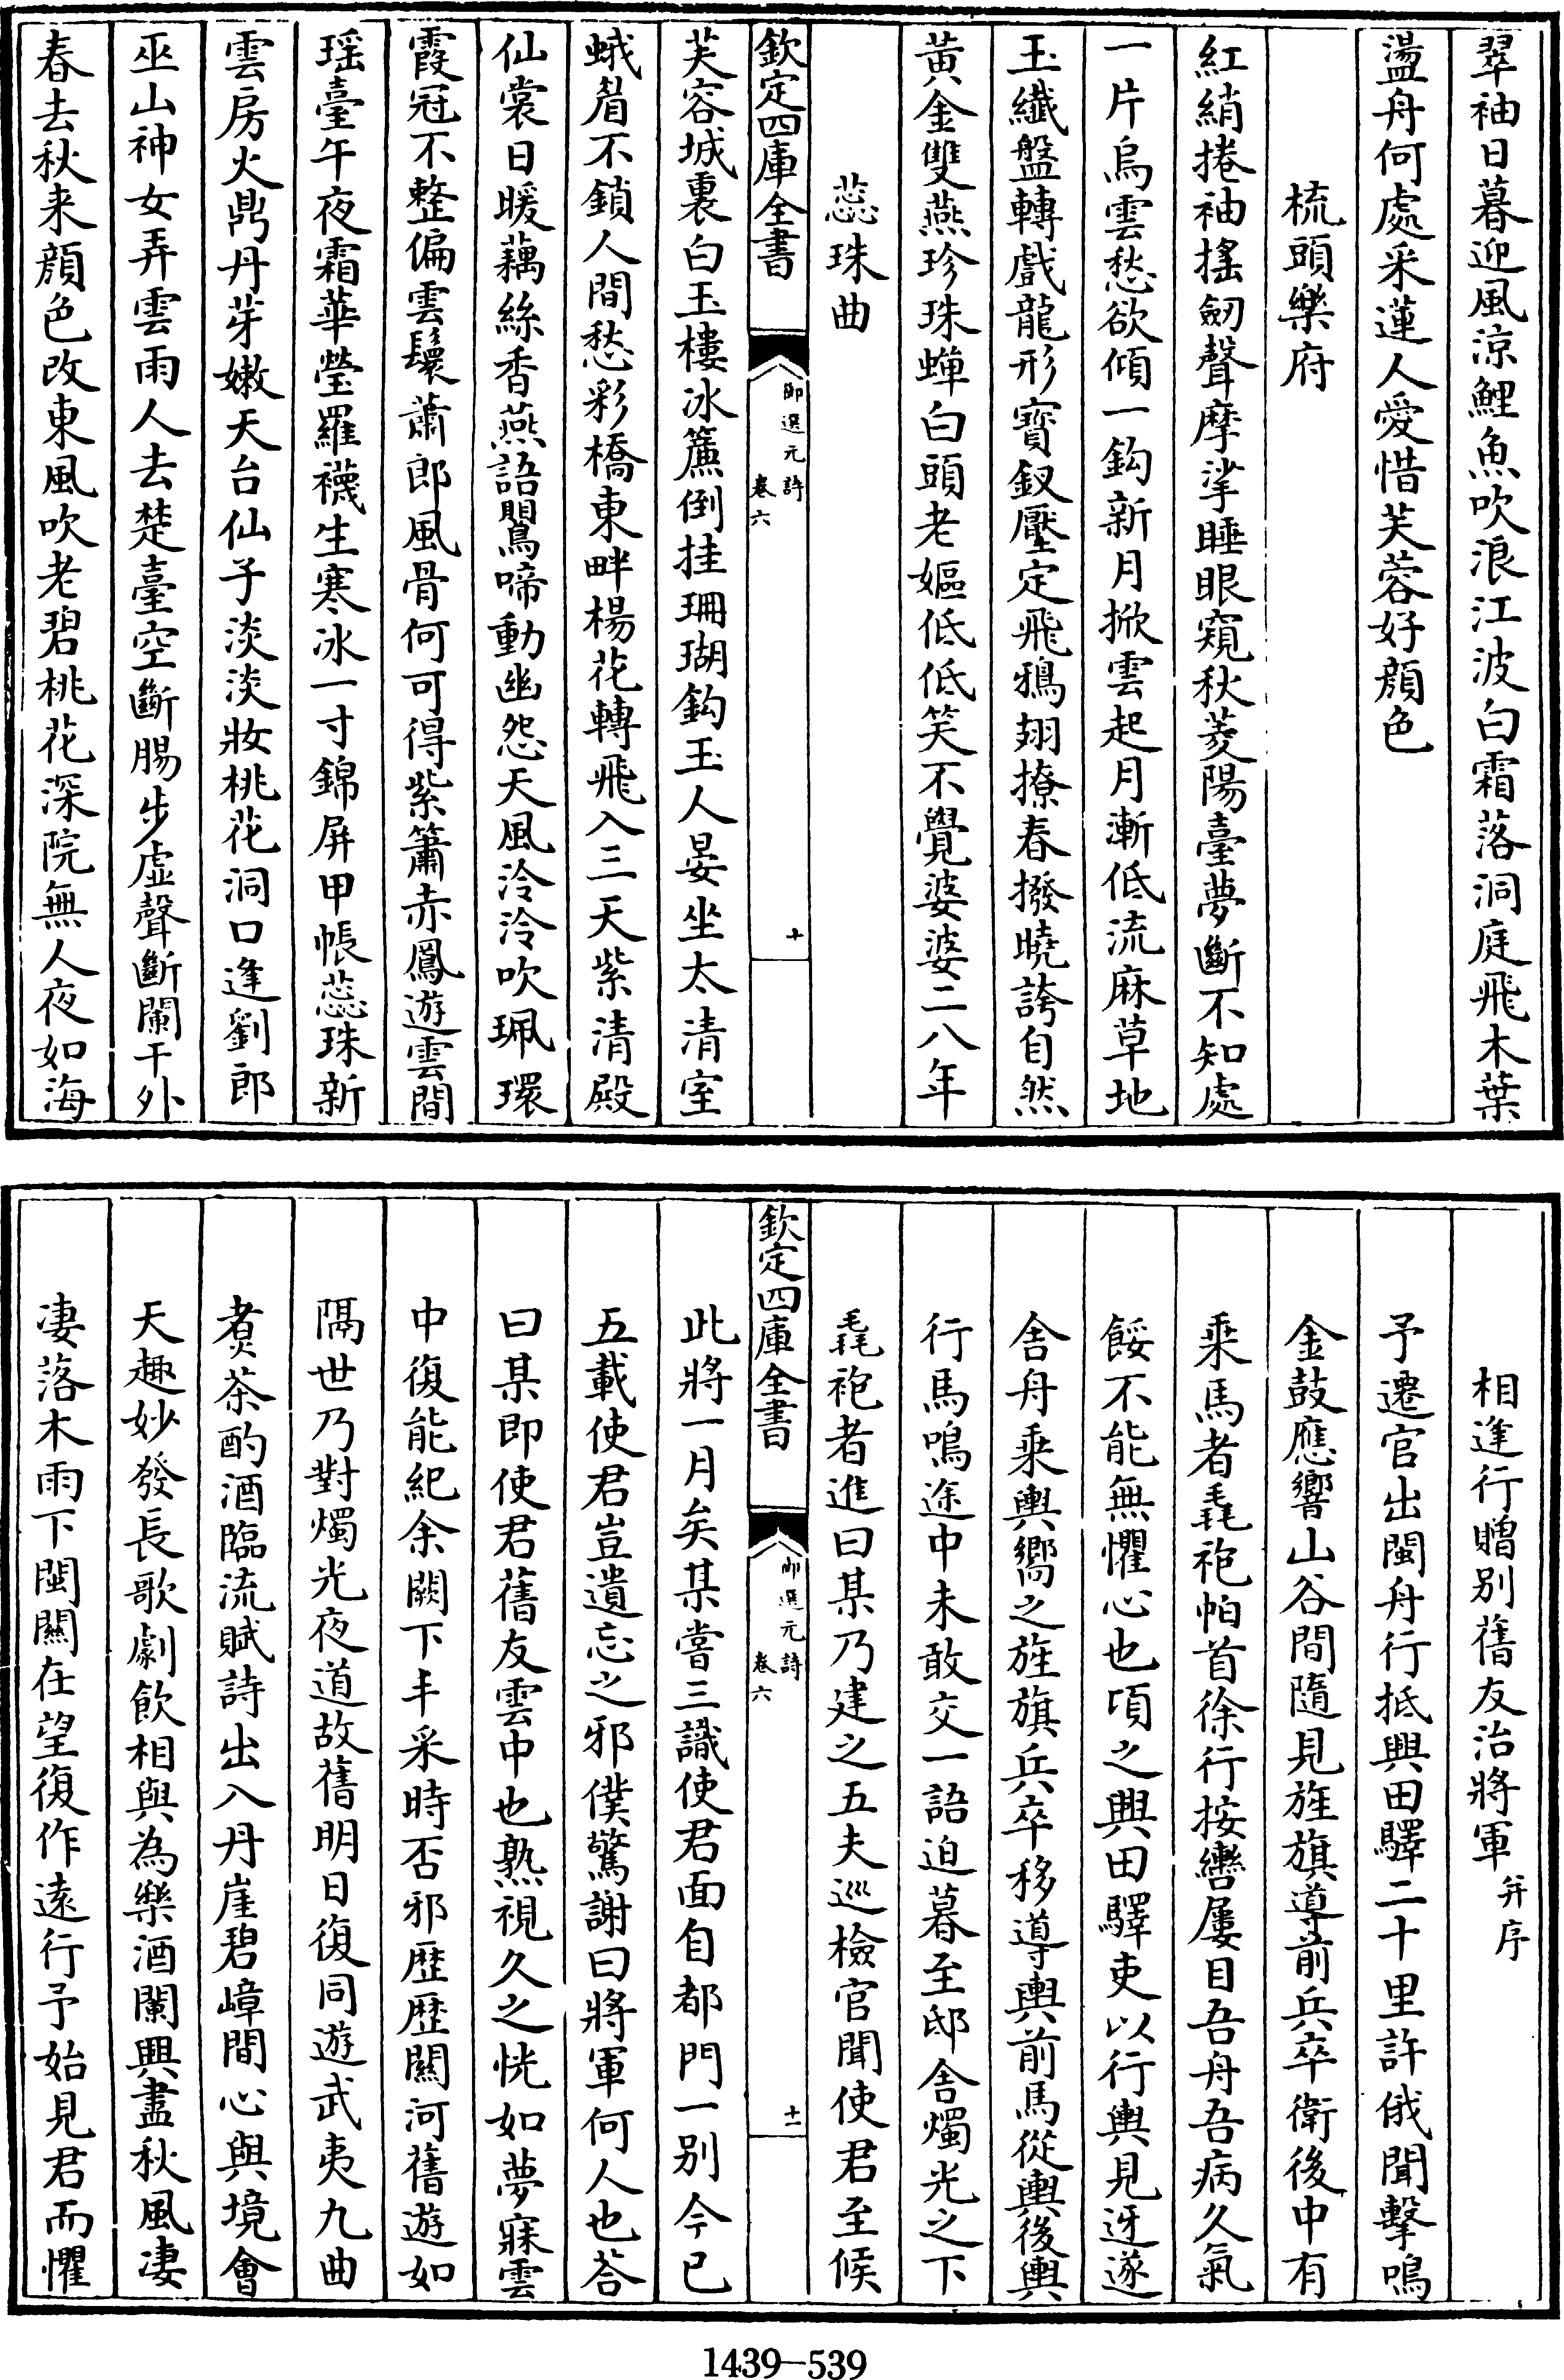 翠袖日暮迎風涼鯉魚吹浪江波白霜落洞庭飛木葉
盪舟何處采蓮人愛惜芙蓉好顏色
梳頭樂府
紅綃捲袖搖劒聲摩挲睡眼窺秋菱陽臺夢斷不知處
一片烏雲愁欲傾一鈎新月掀雲起月漸低流麻草地
玉纖盤轉戲龍形寶釵壓定飛鴉翅撩春撥曉誇自然
黃金雙燕珍珠蟬白頭老嫗低低笑不覺婆婆二八年
蕊珠曲
欽定四庫全書
御選元詩
卷六
十
芙容城裏白玉樓冰簾倒挂珊瑚鈎玉人晏坐太清室
蛾眉不鎖人間愁彩橋東畔楊花轉飛入三天紫清殿
仙裳日暖藕絲香燕語鸎啼動幽怨天風泠泠吹珮環
霞冠不整偏雲鬟蕭郎風骨何可得紫簫赤鳳遊雲間
瑶臺午夜霜華瑩羅襪生寒冰一寸錦屏甲帳蕊珠新
雲房火鼎丹芽嫩天台仙子淡淡妝桃花洞口逢劉郎
巫山神女弄雲雨人去楚臺空斷腸步虛聲斷闌干外
春去秋来顏色改東風吹老碧桃花深院無人夜如海
相逢行贈别舊友治將軍并序
予遷官出閩舟行抵興田驛二十里許俄聞擊鳴
金鼓應響山谷間隨見旌旗導前兵卒衛後中有
乘馬者毳袍帕首徐行按轡屢目吾舟吾病久氣
餒不能無懼心也頃之興田驛吏以行輿見迓遂
舍舟乘輿嚮之旌旗兵卒移導輿前馬從輿後輿
行馬鳴途中未敢交一語迫暮至邸舍燭光之下
毳袍者進曰某乃建之五夫巡檢官聞使君至候
欽定四庫全書
御選元詩
卷六
十一
此將一月矣某嘗三識使君面自都門一别今已
五載使君豈遺忘之邪僕驚謝曰將軍何人也荅
曰某即使君舊友雲中也熟視久之恍如夢寐雲
中復能紀余闕下丰采時否邪歷歷關河舊遊如
隔世乃對燭光夜道故舊明日復同遊武夷九曲
煑茶酌酒臨流賦詩出入丹崖碧嶂間心與境會
天趣妙發長歌劇飲相與為樂酒闌興盡秋風凄
凄落木雨下閩關在望復作遠行予始見君而懼
1439—539